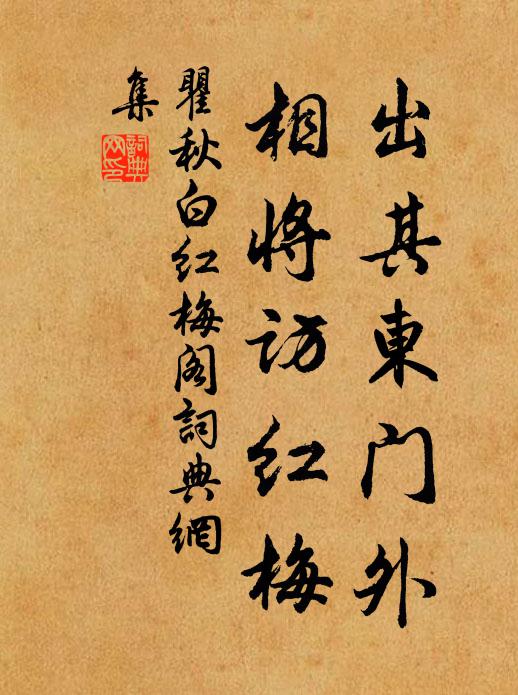 出其東门外
相將访红梅
瞿秋白红梅阁詞典網
集
詞典网印